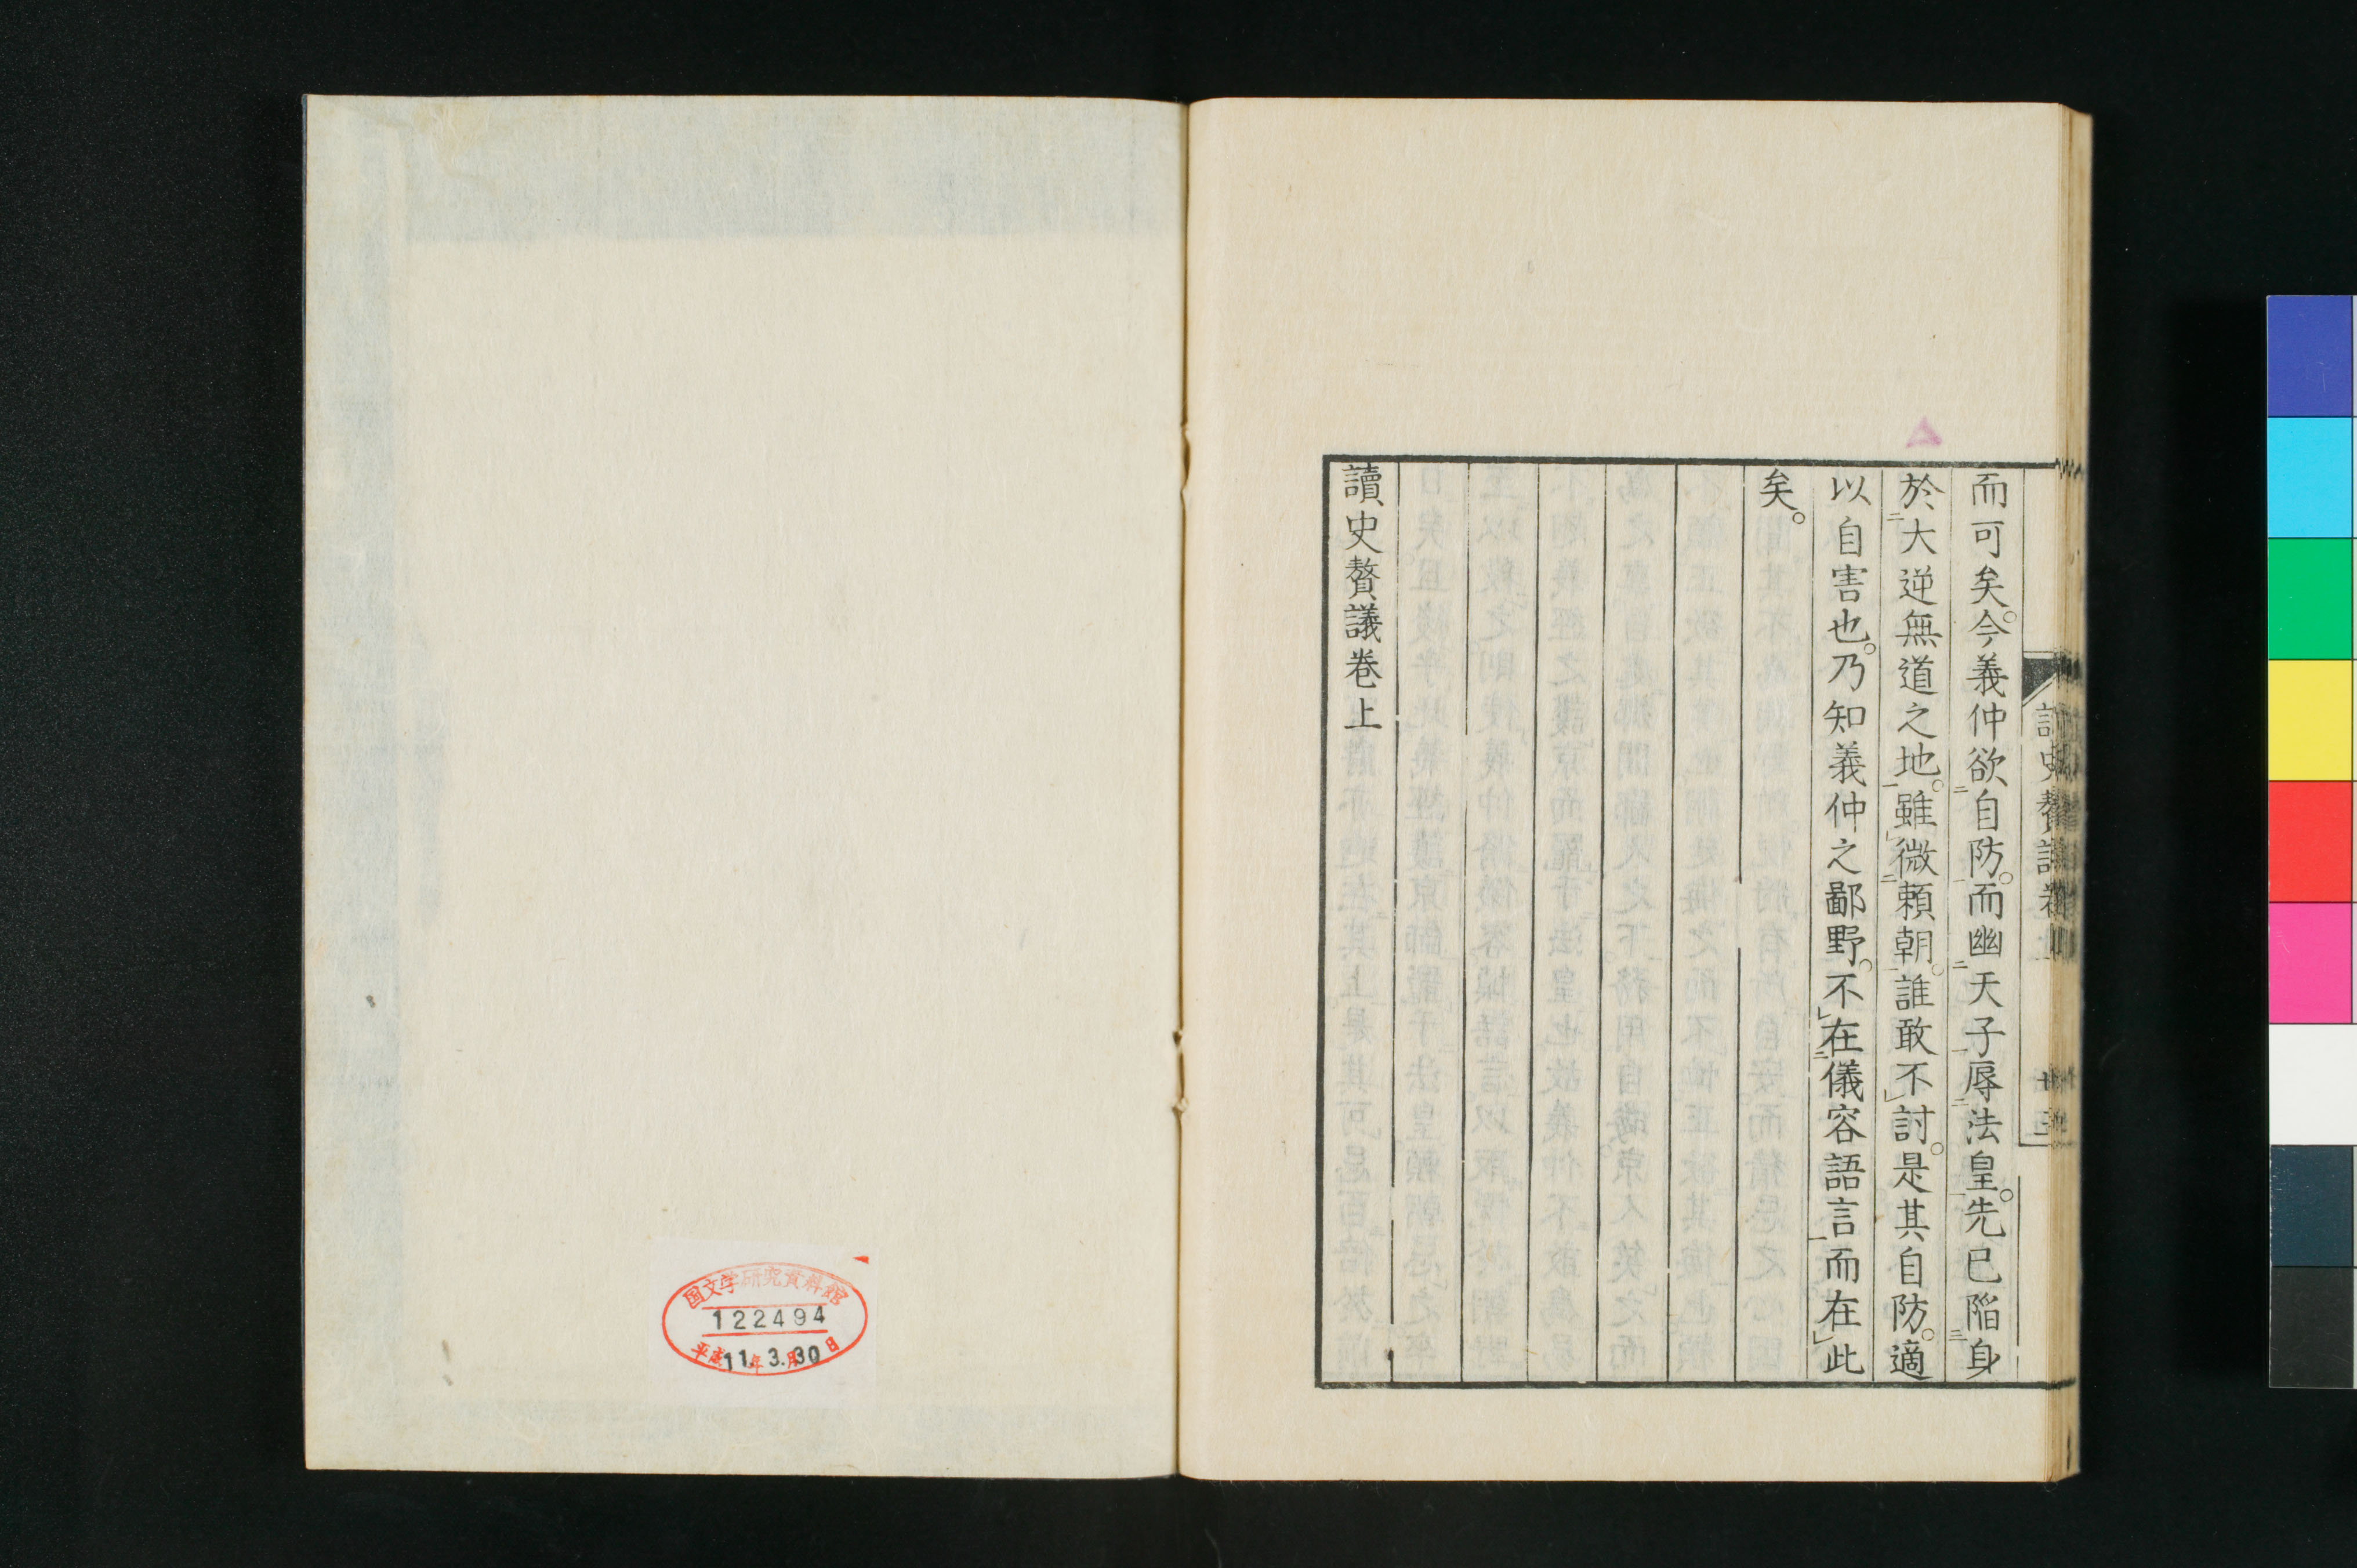 而可矣。今義仲欲自防。而幽天子辱法皇。先已陷身
於大逆無道之地。雖微頼朝。誰敢不討。是其自防。適
以自害也。乃知義仲之鄙野。不在儀容語言而在此
矣。
讀史贅議卷上
国文学研究資料館
122494
平成11年3.月30日